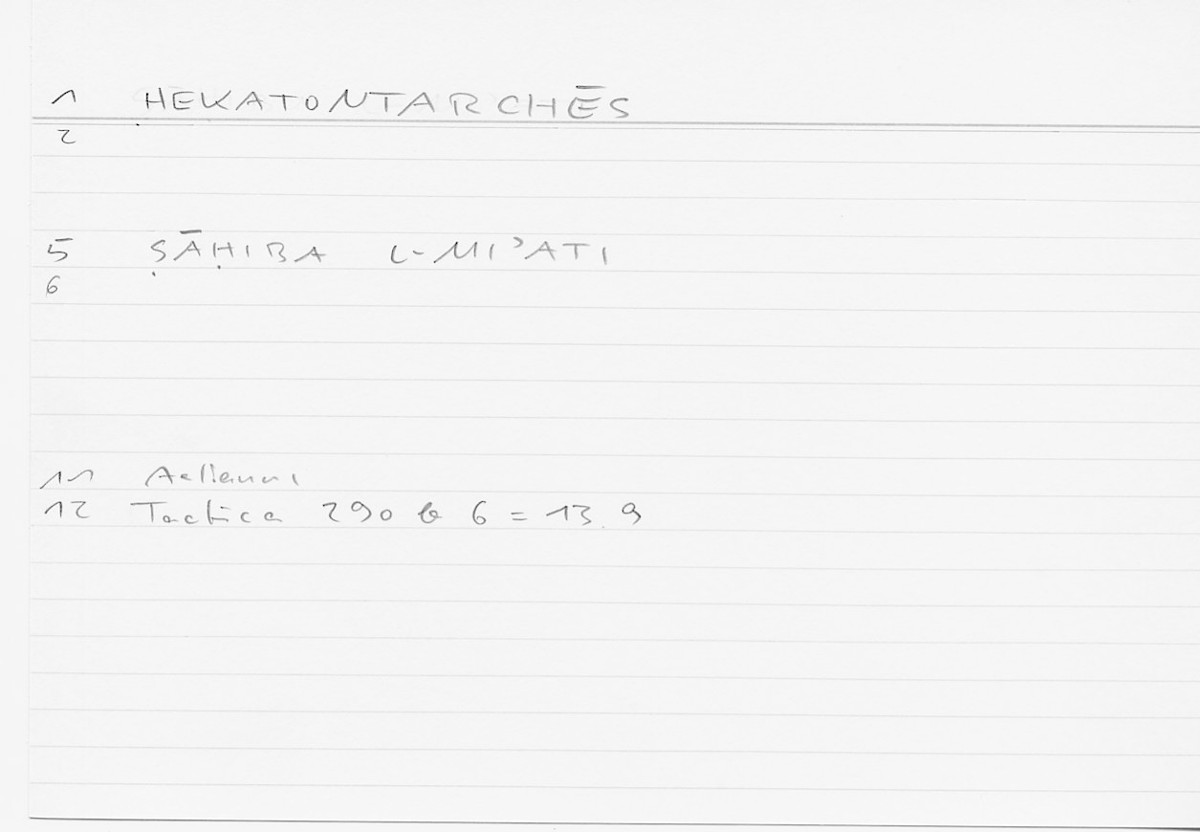 1 HEKATONTARCHĒS
2
5 ṢĀḤIBA L-MIʾATI
6
11 Aelianus
12 Tactica 290 b 6 = 13.9